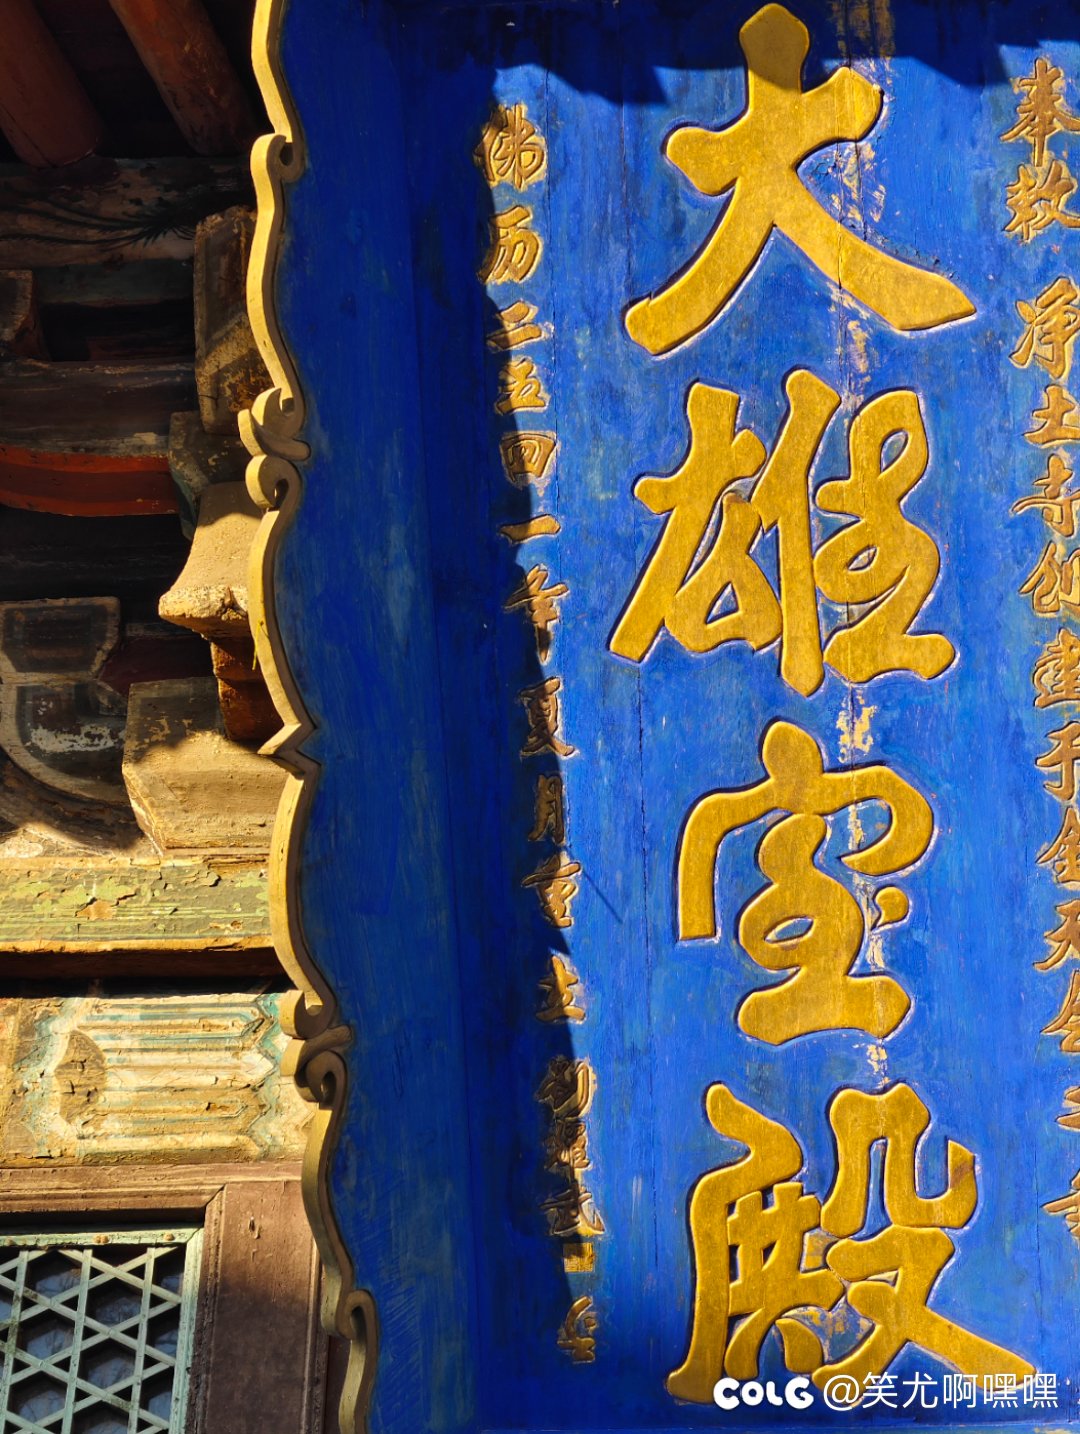 奉敕净土寺创建于金天会二年
大雄宝殿
佛历二五四一年夏月重
COLG @笑尤啊嘿嘿